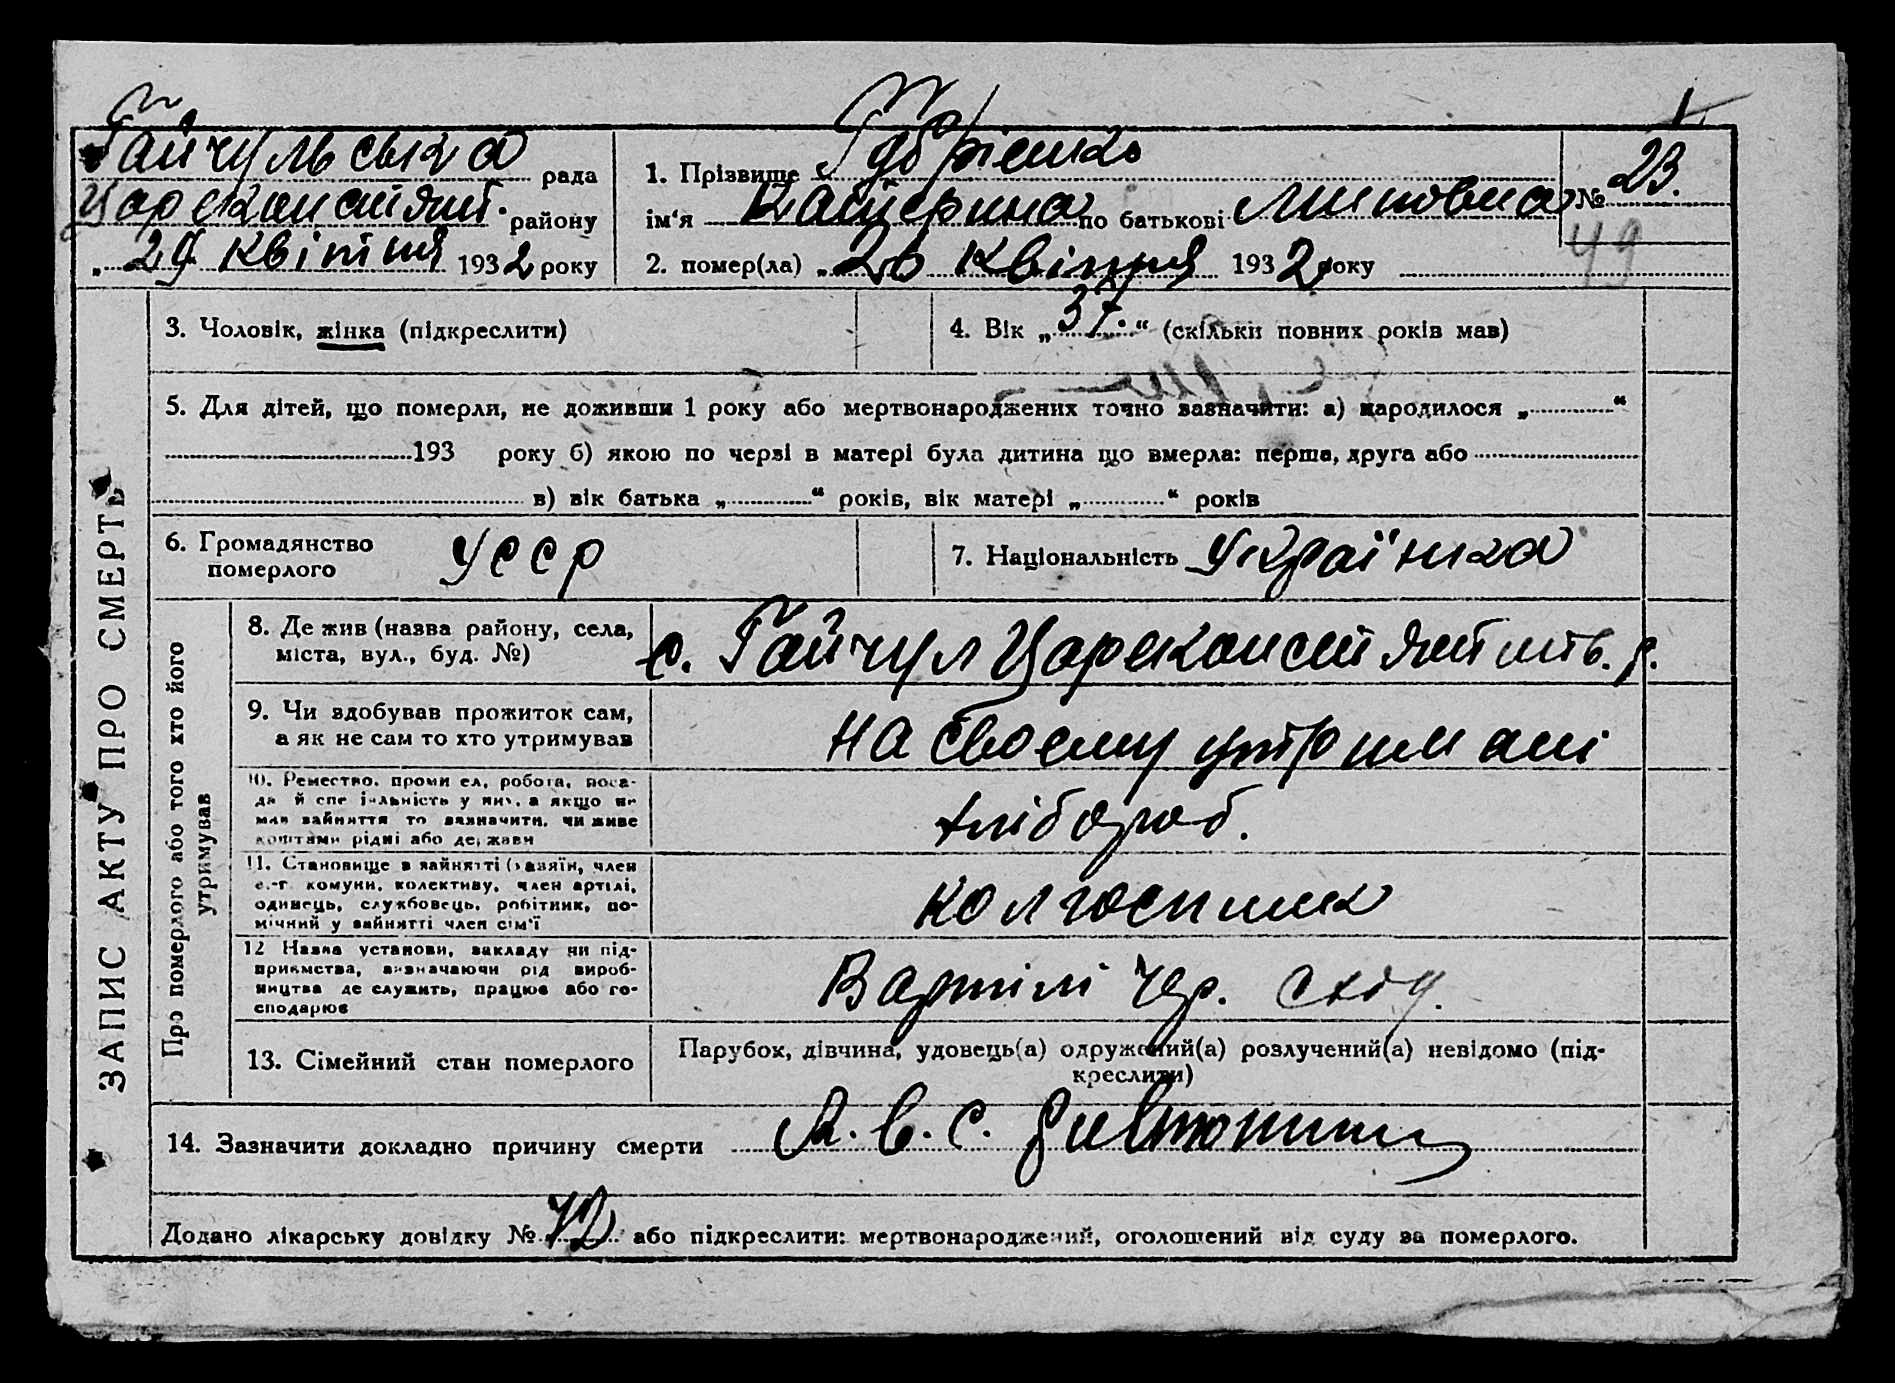 Гайчульська рада
Царекокстянт. району
„ 29 квітня 1932 року
1. Прізвище Габрієнко
ім'я Катерина по батькові
2. помер(ла) „ 26 квітня 1932 року
№ 23.
49
ЗАПИС АКТУ ПРО СМЕРТЬ
3. Чоловік, жінка (підкреслити)
4. Вік „ 37. “ (скільки повних років мав)
5. Для дітей, що померли, не доживши 1 року або мертвонароджених точно зазначити: а) народилося „ “
193 року б) якою по черзі в матері була дитина що вмерла: перша, друга або
в) вік батька „ “ років, вік матері „ “ років
6. Громадянство
померлого
УССР
7. Національність Українка
Про померлого або того хто його
утримував
8. Де жив (назва району, села,
міста, вул., буд. №)
с. Гайчул р.
9. Чи здобував прожиток сам,
а як не сам то хто утримував
на своєму утримані
10. Ремество, промисел, робота, поса-
да й спеціальність у них, а якщо не
мав зайняття то зазначити, чи живе
коштами рідні або держави
хлібороб.
11. Становище в зайнятті (хазяїн, член
с.-г. комуни, колективу, член артілі,
одинець, службовець, робітник, по-
мічний у зайнятті член сім'ї
колгоспник
12 Назва установи, закладу чи під-
приємства, визначаючи рід вироб-
ництва де служить, працює або го-
сподарює
Вартілі Чер. схід.
13. Сімейний стан померлого
Парубок, дівчина, удовець(а) одружений(а) розлучений(а) невідомо (під-
креслити)
14. Зазначити докладно причину смерти
Додано лікарську довідку № 72 або підкреслити: мертвонароджений, оголошений від суду за померлого.